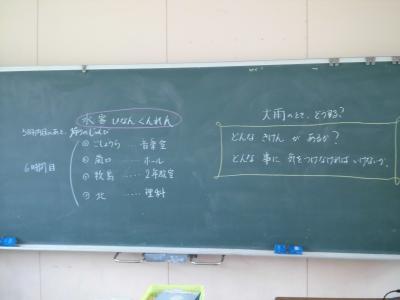 水害 ひなんくんれん
5時間目のあと、帰りのしたく
6時間目
① ごしょうら … 音楽室
② 嵐口 … ホール
③ 牧島 …… 2年教室
④ 北 …… 理科
大雨のとき、どうする?
どんな きけん が あるか?
どんな 事に 気をつけなければ いけないか。